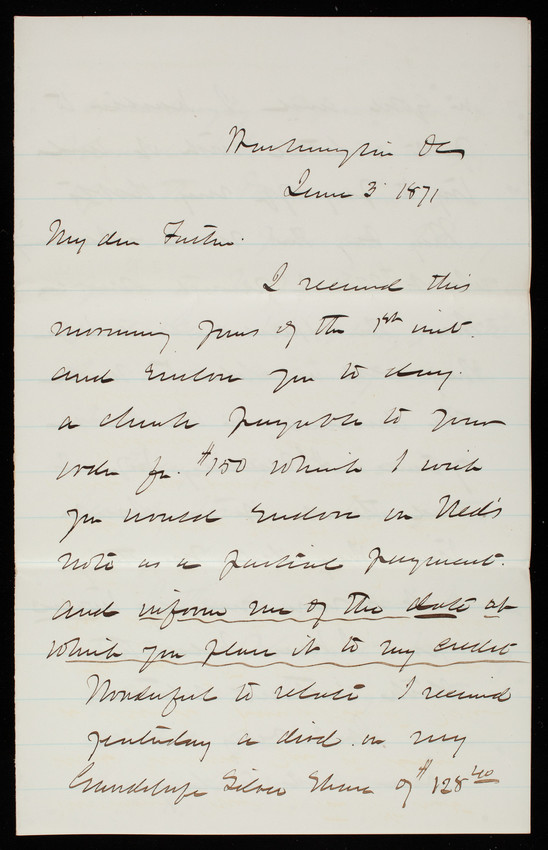 Washington DC
June 3 1871
My dear Father.
I received this
morning yours of the 1st inst.
and Enclose you to day.
a check payable to your
order for. $150 which I wish
you would Endorse on Ned's
note as a partial payment.
and inform me of the date at
which you place it to my credit
Wonderful to relate I received
yesterday a divd. on my
Guadalupe Silver Share of $128 40